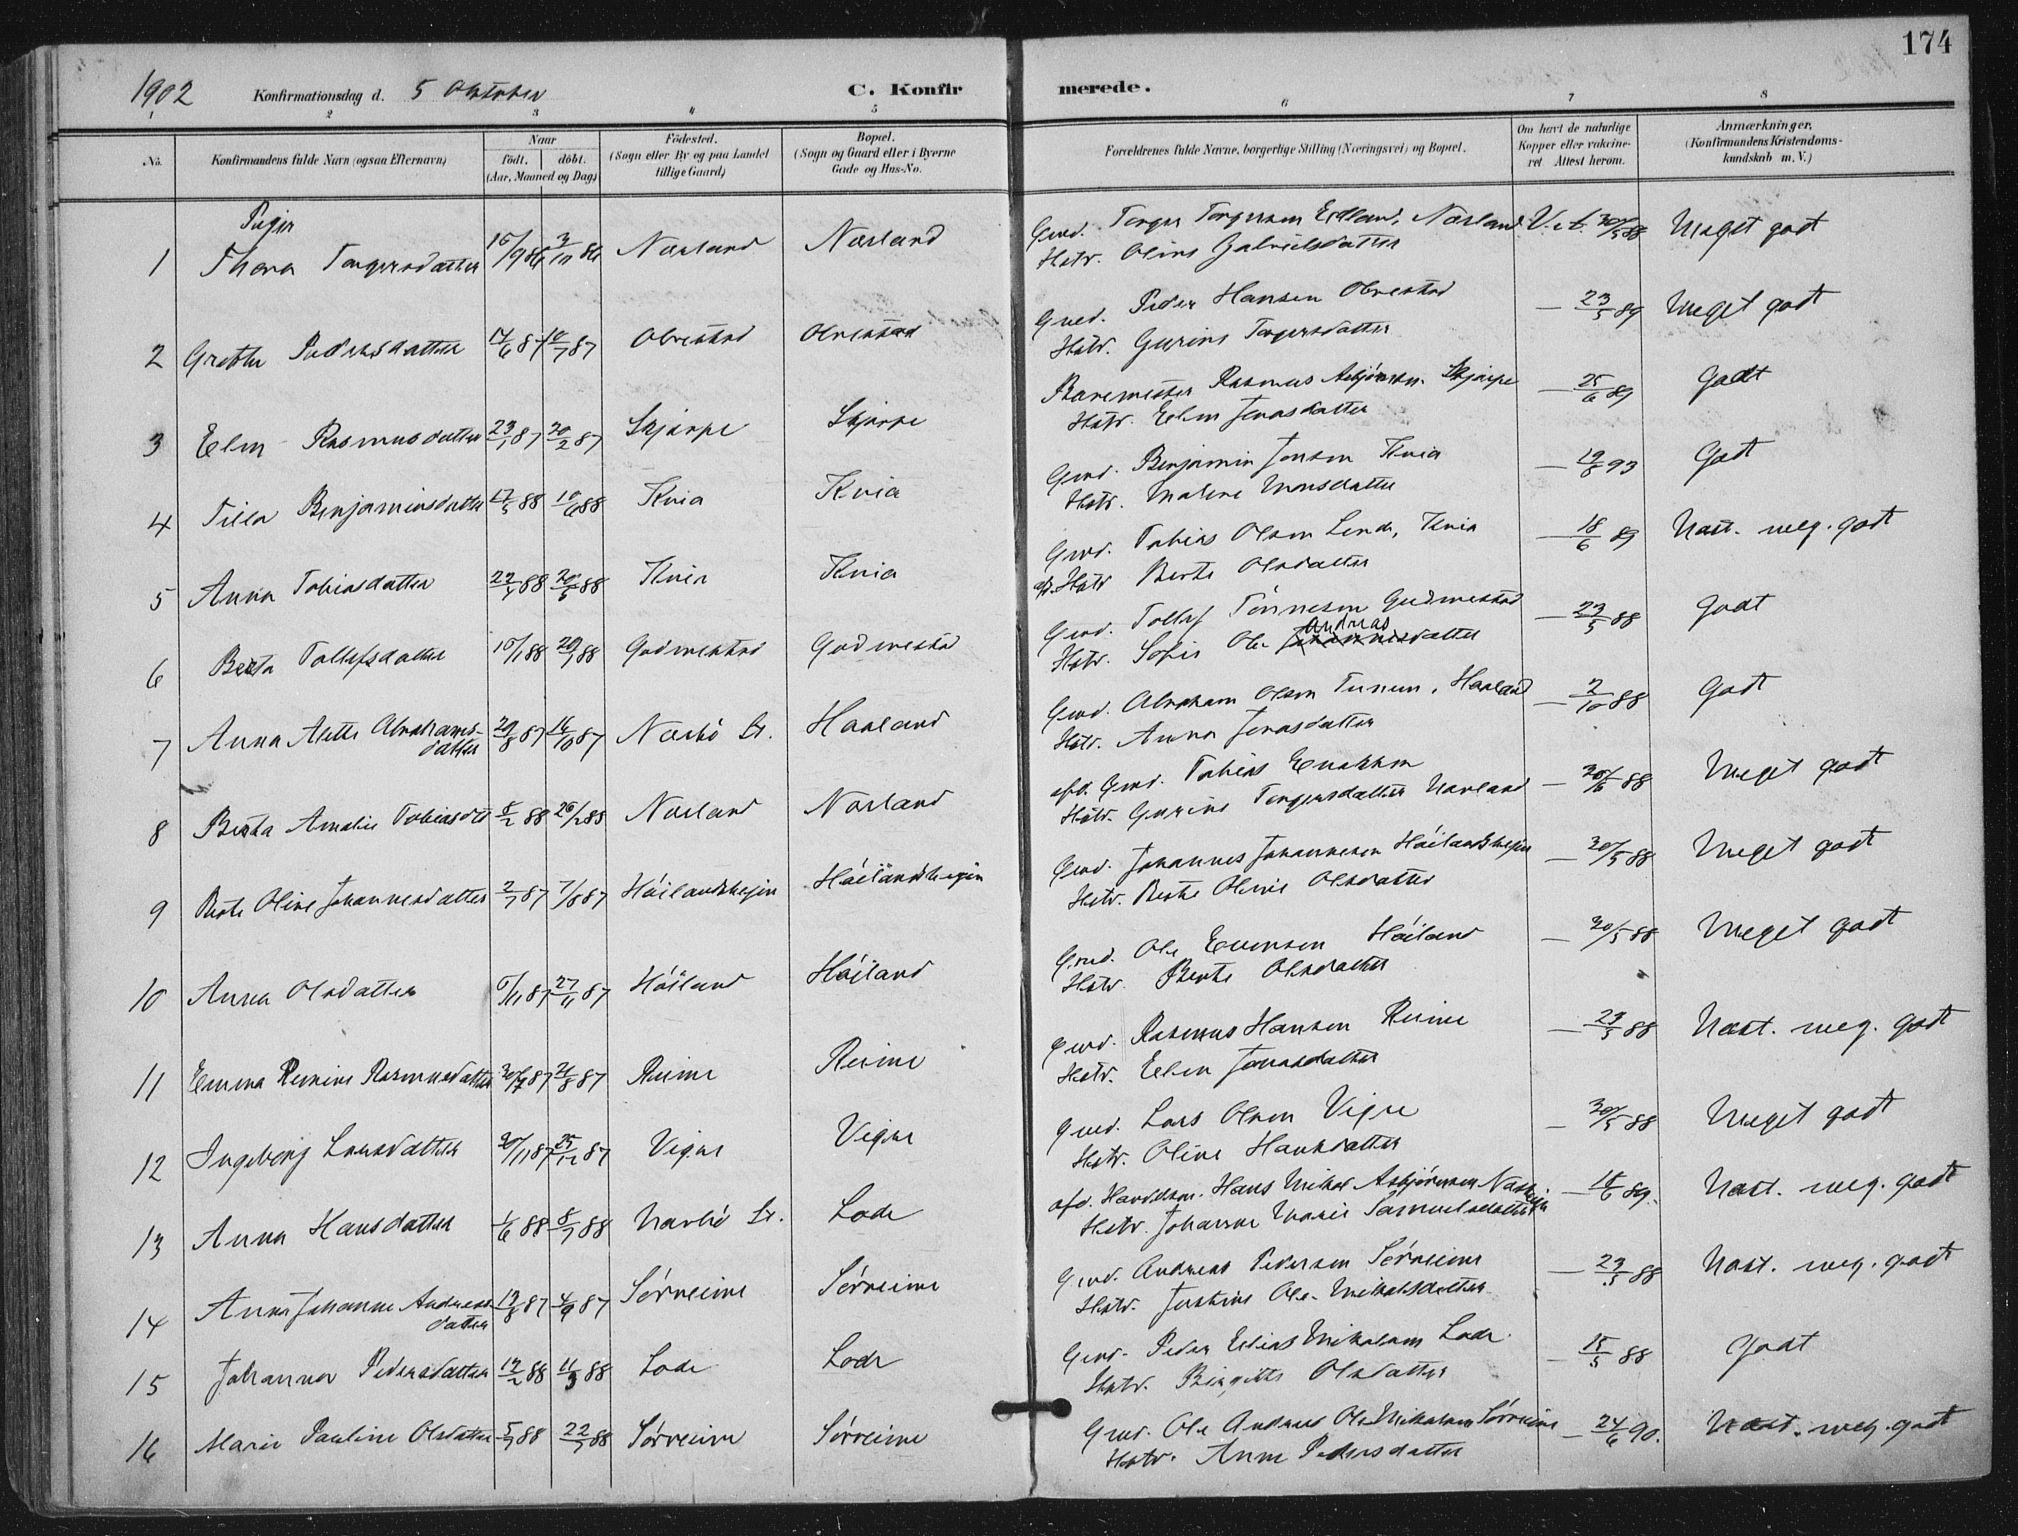 174
1902 Konfirmationsdag d. 5 Oktober C. Konfirmerede.
1 2 3 4 5 6 7 8
No. Konfirmandens fulde Navn (ogsaa Efternavn) Naar født. døbt. (Aar, Maaned og Dag) Födested. (Sogn eller By og paa Landet tillige Gaard) Bopæl. (Sogn og Gaard eller i Byerne Gade og Hus-No. Forældrenes fulde Navne, borgerlige Stilling (Næringsvei) og Bopæl. Om havt de naturlige Kopper eller vaccineret Attest herom. Anmærkninger. (Konfirmandens Kristendomskundskab m. V.)
Piger
1 Thora Torgersdatter 16/9 86 3/10 86 Nærland Nærland Grd. Torger Torgersen Eidland, Nærland V. at. 30/5 88 Meget godt
Hstr. Oline Gabrielsdatter
2 Grethe Pedersdatter 17/6 87 10/7 87 Obrestad Obrestad Grd. Peder Hansen Obrestad — 23/5 89 Meget godt
Hstr. Gurine Torgersdatter
3 Elen Rasmusdatter 23/1 87 20/2 87 Skjærpe Skjærpe Banemester Rasmus Asbjørnsen Skjærpe — 25/6 89 Godt
Hstr. Elen Jonasdatter
4 Tilla Benjaminsdatter 17/5 88 10/6 88 Kvia Kvia Grd. Benjamin Jonsen Kvia — 19/8 93 Godt
Hstr. Malene Monsdatter
5 Anna Tobiasdatter 22/4 88 20/5 88 Kvia Kvia Grd. Tobias Olsen Lende, Kvia — 18/6 89 Nast. meg. godt
afd. Hstr Berte Olsdatter
6 Berta Tollefsdatter 10/1 88 29/1 88 Godmestad Godmestad Grd. Tollef Tønnesen Gudmestad — 23/5 88 Godt
Andreas
Hstr. Sofie Ole datter
7 Anna Alette Abrahamsdatter 29/8 87 16/10 87 Nærbø St. Haaland Grd. Abraham Olsen Tunem, Haaland — 2/10 88 Godt
Hstr. Anna Jonasdatter
8 Berta Amalie Tobiasdtr 5/2 88 26/2 88 Nærland Nærland afd. Grd. Tobias Enoksen — 30/5 88 Meget godt
Hstr. Gurine Torgersdatter Nærland
9 Berte Oline Johannesdatter 2/7 87 7/8 87 Høilandshejen Høilandshejen Grd. Johannes Johannesen Høilandshejen — 30/5 88 Meget godt
Hstr. Berte Oline Olsdatter
10 Anna Olsdatter 6/11 87 27/11 87 Høiland Høiland Grd. Ole Evensen Høiland — 30/5 88 Meget godt
Hstr. Berte Olsdatter
11 Emma Reinine Rasmusdatter 30/7 87 21/8 87 Reime Reime Grd. Rasmus Hansen Reime — 23/5 88 Nast. meg. godt
Hstr. Elen Jonasdatter
12 Ingeborg Larsdatter 30/11 87 25/12 87 Vigre Vigre Grd. Lars Olsen Vigre — 30/5 88 Meget godt
Hstr. Oline Hansdatter
13 Anna Hansdatter 1/6 88 8/7 88 Nærbø St. Lode afd. Handelsm. Hans Mikal Asbjørnsen — 18/6 89. Nast. meg. godt
Hstr. Johanne Marie Samuelsdatter
14 Anne Johanne Andreasdatter 19/8 87 4/9 87 Sørreime Sørreime Grd. Andreas Pedersen Sørreime — 23/5 88 Nast. meg. godt
Hstr. Justine Ole-Mikalsdatter
15 Johanna Pedersdatter 19/2 88 11/3 88 Lode Lode Grd. Peder Elias Mikalsen Lode — 15/5 88 Godt
Hstr. Birgitte Olsdatter
16 Marie Pauline Olsdatter 5/7 88 22/7 88 Sørreime Sørreime Grd. Ole Andreas Ole-Mikalsen Sørreime — 24/6 90. Nast. meg. godt
Hstr. Anne Pedersdatter